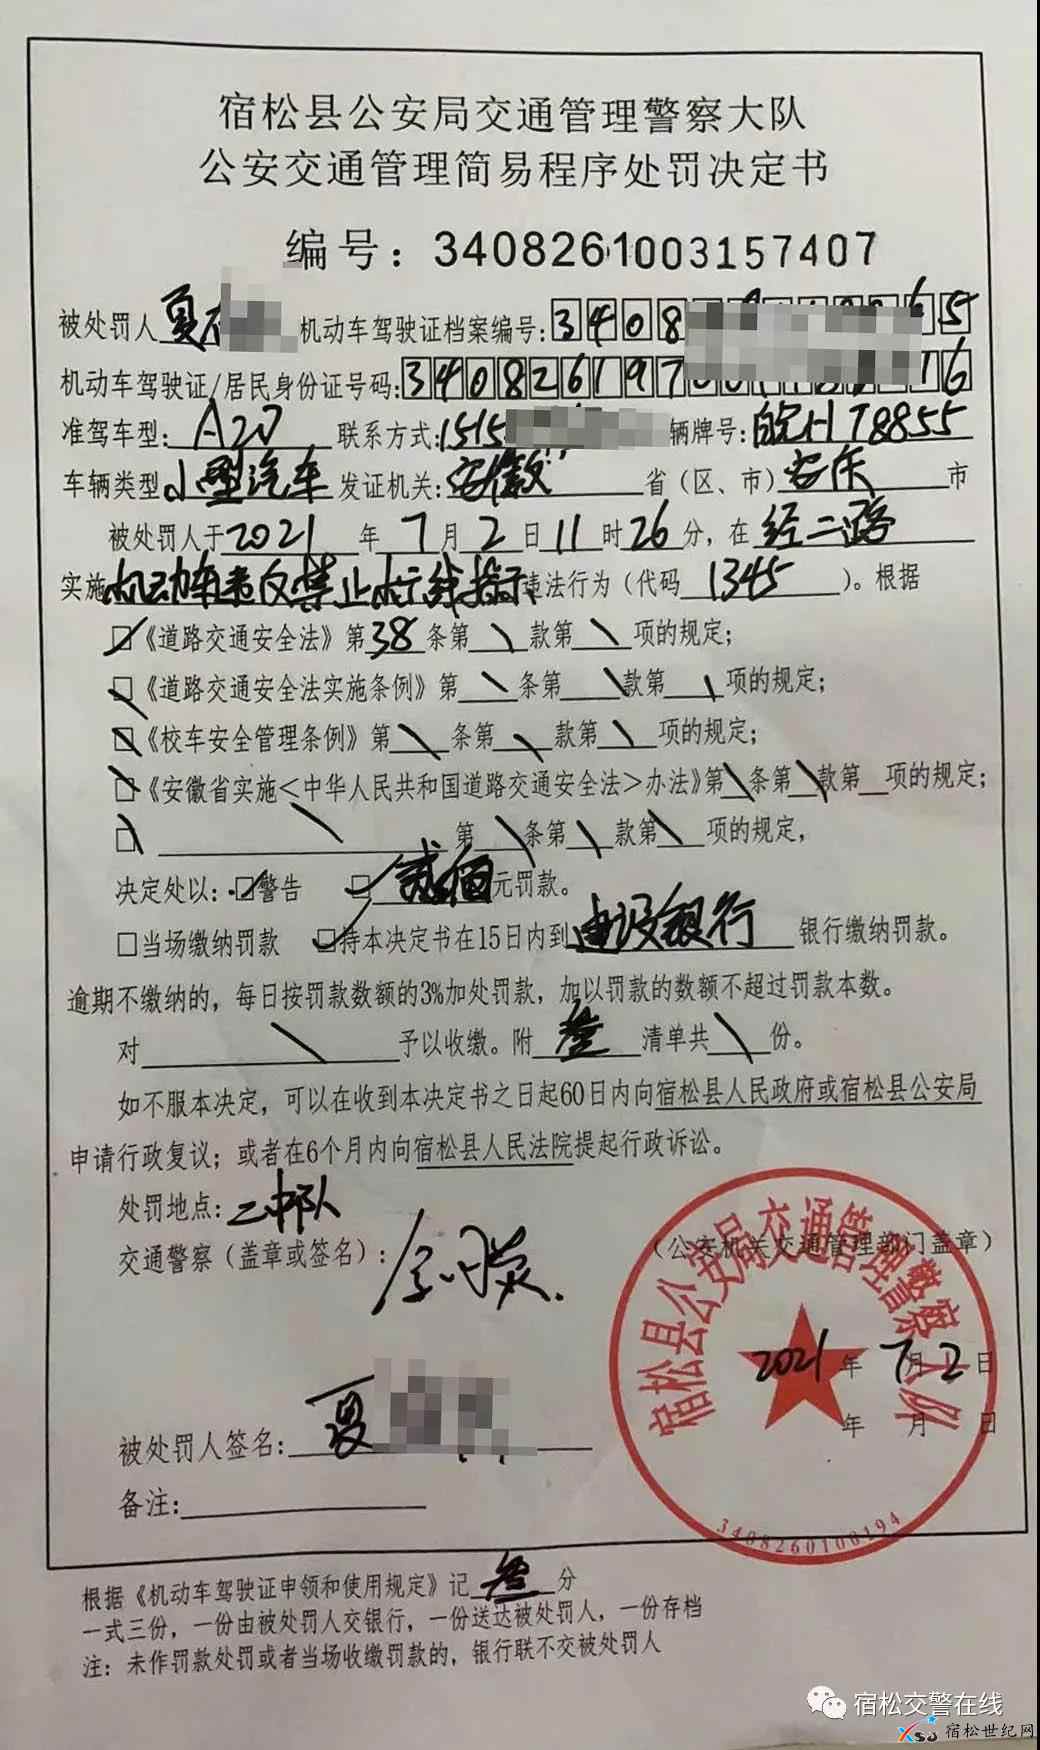 宿松县公安局交通管理警察大队
公安交通管理简易程序处罚决定书
编号：3408261003157407
被处罚人 夏 机动车驾驶证档案编号：3408 65
机动车驾驶证/居民身份证号码：340826197 16
准驾车型：A2D 联系方式：1515 辆牌号：皖H T8855
车辆类型 小型汽车 发证机关：安徽 省（区、市）安庆 市
被处罚人于 2021 年 7 月 2 日 11 时 26 分，在 经二路
实施 机动车违反禁止标线指示 违法行为（代码 1345 ）。根据
☑《道路交通安全法》第 38 条第 \ 款第 \ 项的规定；
□《道路交通安全法实施条例》第 \ 条第 \ 款第 \ 项的规定；
□《校车安全管理条例》第 \ 条第 \ 款第 \ 项的规定；
□《安徽省实施<中华人民共和国道路交通安全法>办法》第 \ 条第 \ 款第 项的规定；
□ \ 第 \ 条第 \ 款第 \ 项的规定，
决定处以：☑警告 ☑ 贰佰 元罚款。
□当场缴纳罚款 ☑持本决定书在15日内到 建设银行 银行缴纳罚款。
逾期不缴纳的，每日按罚款数额的3%加处罚款，加以罚款的数额不超过罚款本数。
对 \ 予以收缴。附 清单共 \ 份。
如不服本决定，可以在收到本决定书之日起60日内向宿松县人民政府或宿松县公安局
申请行政复议；或者在6个月内向宿松县人民法院提起行政诉讼。
处罚地点：二中队
交通警察（盖章或签名）：
（公安机关交通管理部门盖章）
宿松县公安局交通管理警察大队
2021 年 7 月 2 日
年 月 日
3408260100194
被处罚人签名：夏
备注：
根据《机动车驾驶证申领和使用规定》记 叁 分
一式三份，一份由被处罚人交银行，一份送达被处罚人，一份存档
注：未作罚款处罚或者当场收缴罚款的，银行联不交被处罚人
宿松交警在线
宿松世纪网